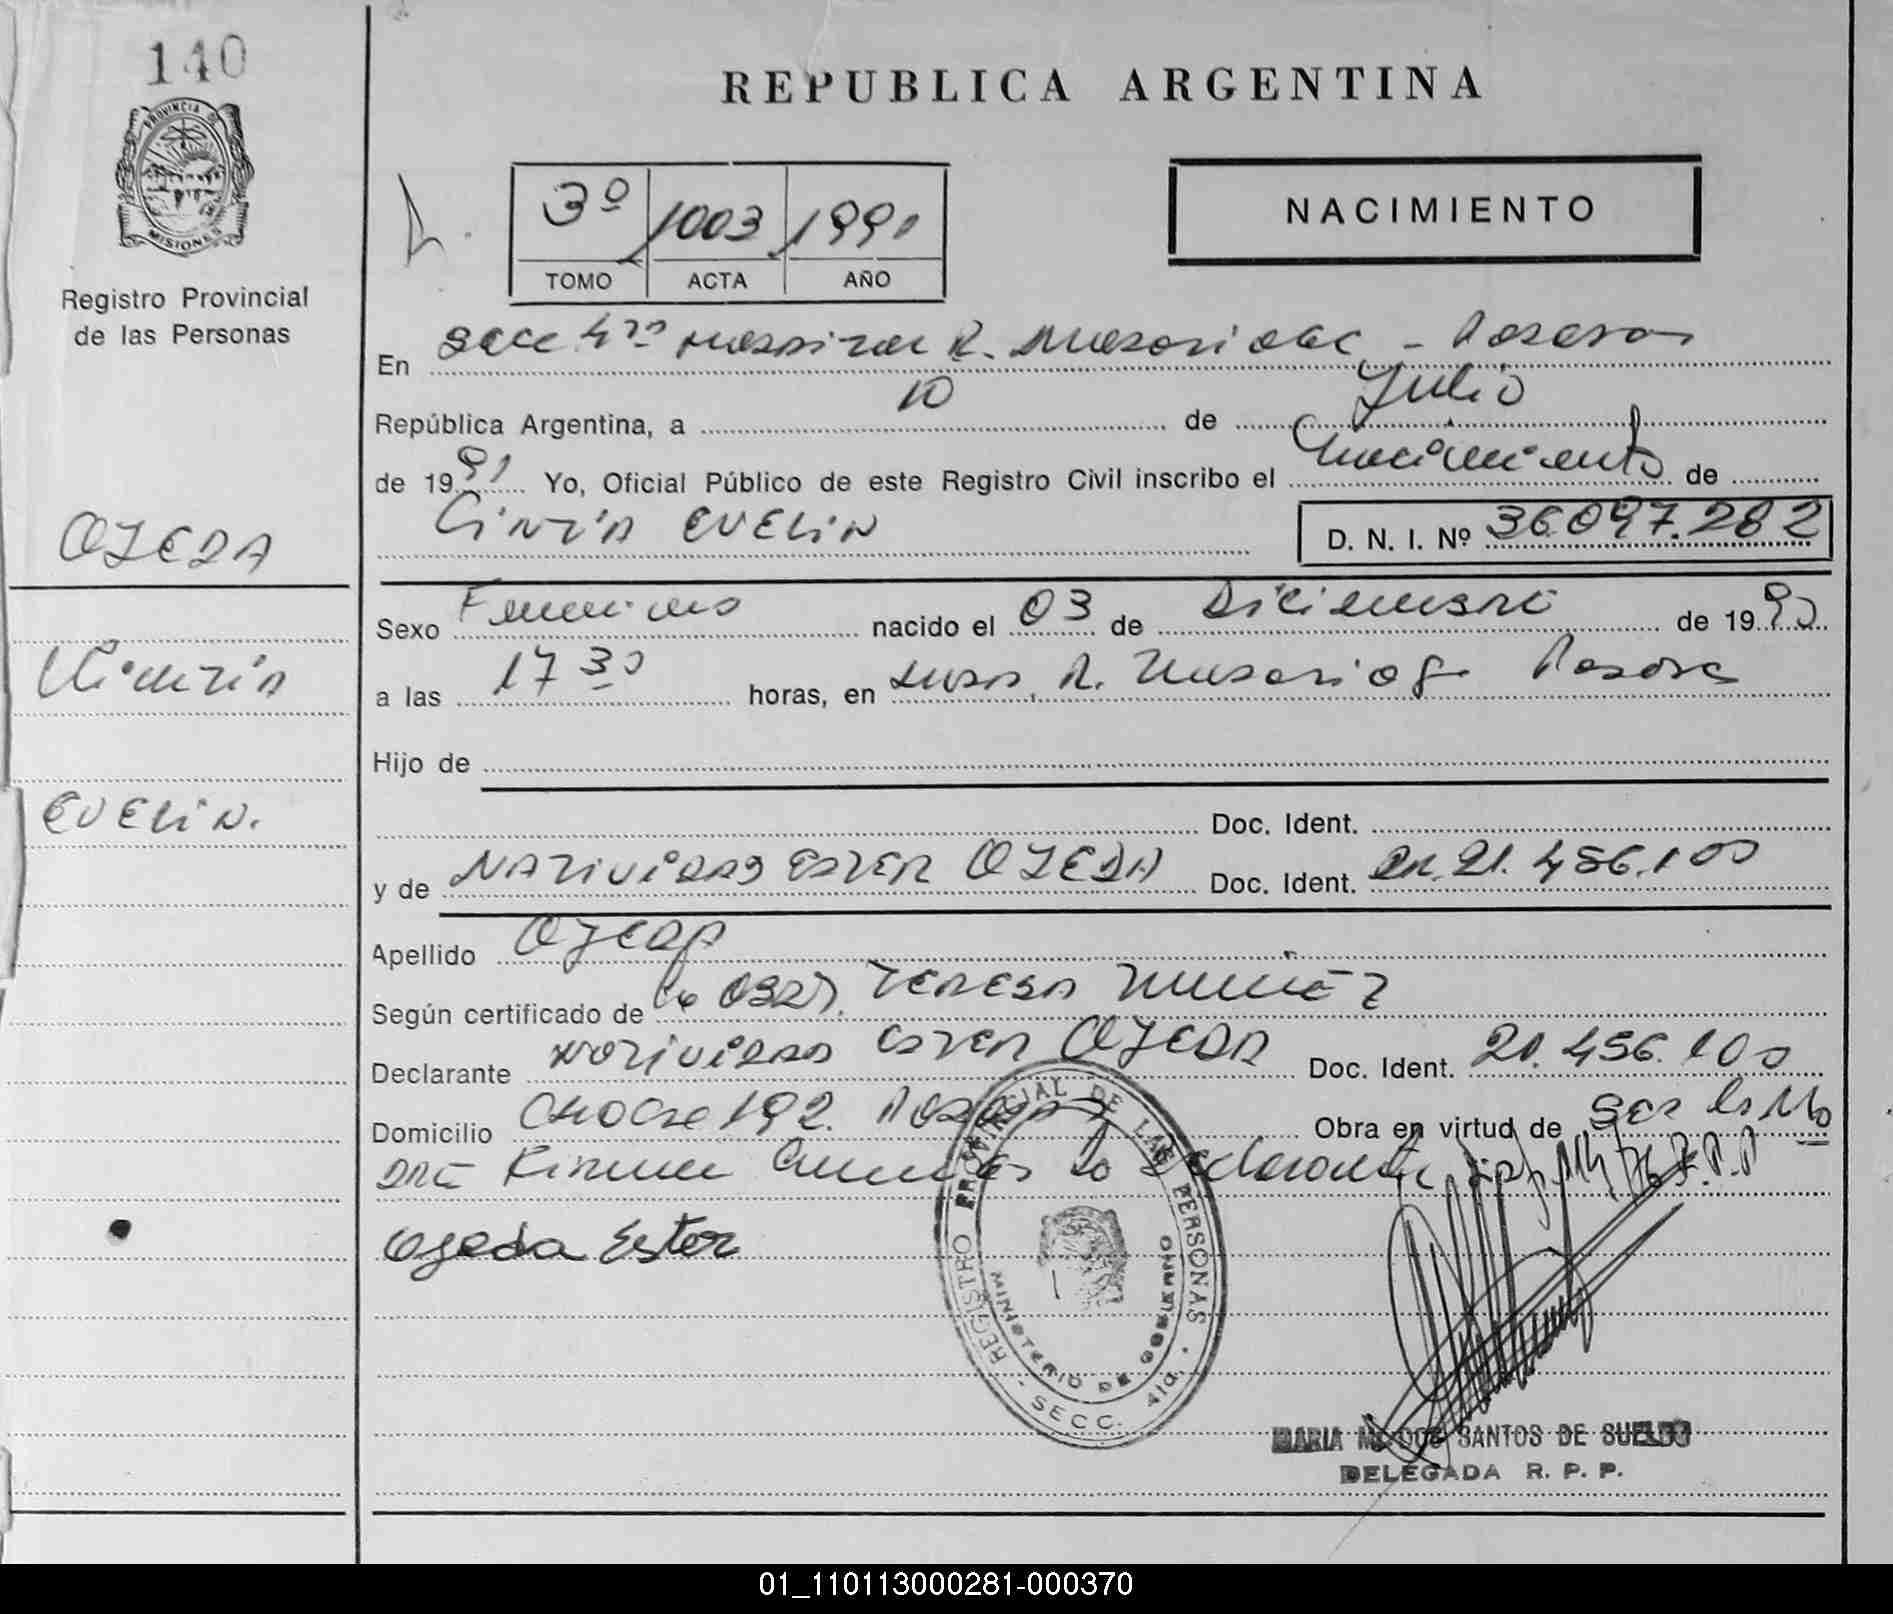 140
PROVINCIA DE
MISIONES
Registro Provincial
de las Personas
OJEDA
Cintia
EVELIN.
REPUBLICA ARGENTINA
3º 1003 1991
TOMO ACTA AÑO
NACIMIENTO
En Secc 4ta Hospital R. Madariaga - Posadas
República Argentina, a 10 de Julio
de 1991 Yo, Oficial Público de este Registro Civil inscribo el nacimiento de
CINTIA EVELIN D. N. I. Nº 36.097.282
Sexo Femenino nacido el 03 de Diciembre de 1990
a las 17 30 horas, en R. Madariaga Posadas
Hijo de
Doc. Ident.
y de NATIVIDAD ESTER OJEDA Doc. Ident. 21.456.100
Apellido OJEDA
Según certificado de la Obst. TERESA NUÑEZ
Declarante NATIVIDAD ESTER OJEDA Doc. Ident. 21.456.100
Domicilio 192. Posadas Obra en virtud de ser la Ma
dre Firma la declarante
Ojeda Ester
REGISTRO PROVINCIAL DE LAS PERSONAS
MINISTERIO DE GOBIERNO
- SECC. 4ta. -
MARIA M. DOS SANTOS DE SUELDO
DELEGADA R. P. P.
01_110113000281-000370